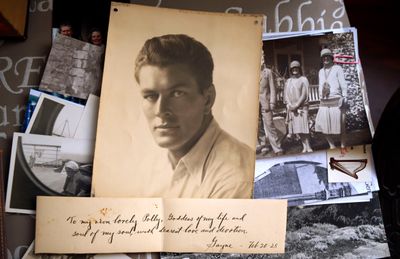 To my own lovely Polly, Goddess of my life and
soul of my soul, with dearest love and devotion.
Gayne - Feb 20-25